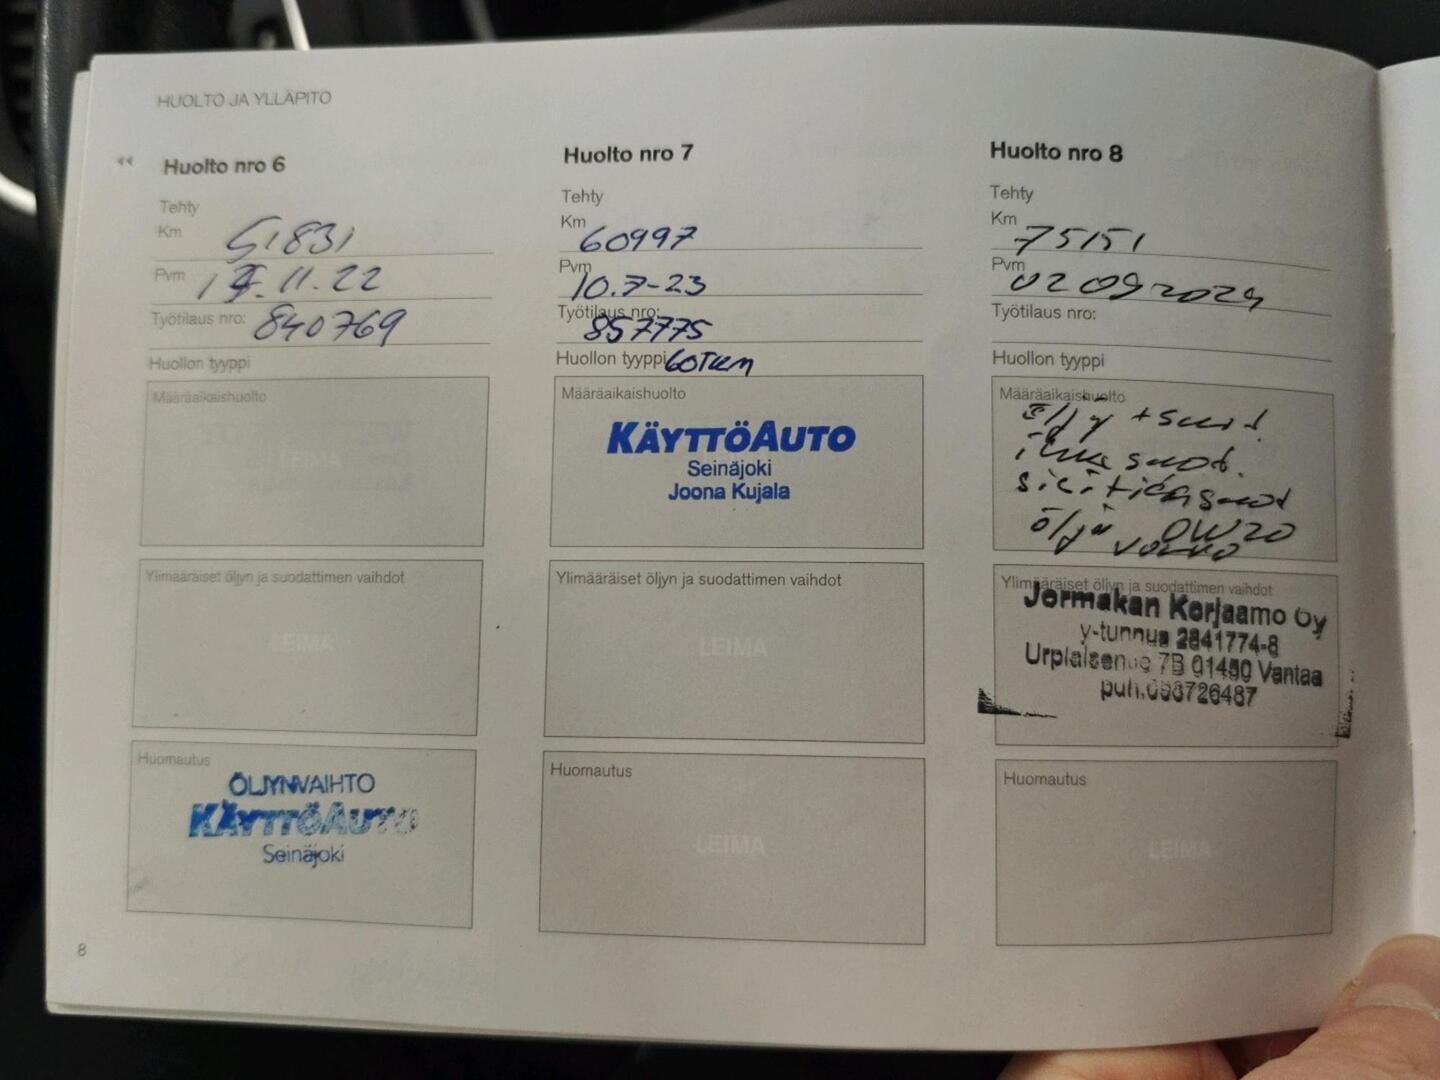 HUOLTO JA YLLÄPITO
Huolto nro 6
Tehty
Km 51831
Pvm 17.11.22
Työtilaus nro: 840769
Huollon tyyppi
Määräaikaishuolto
LEIMA
Ylimääräiset öljyn ja suodattimen vaihdot
LEIMA
Huomautus
ÖLJYNVAIHTO
KÄYTTÖAUTO
Seinäjoki
8
Huolto nro 7
Tehty
Km 60997
Pvm 10.7-23
Työtilaus nro: 857775
Huollon tyyppi 60TKM
Määräaikaishuolto
KÄYTTÖAUTO
Seinäjoki
Joona Kujala
Ylimääräiset öljyn ja suodattimen vaihdot
LEIMA
Huomautus
LEIMA
Huolto nro 8
Tehty
Km 75151
Pvm 02 09 2024
Työtilaus nro:
Huollon tyyppi
Määräaikaishuolto
öljy + suod.
ilma suod.
öljy 0W20
Ylimääräiset öljyn ja suodattimen vaihdot
Jormakan Korjaamo Oy
y-tunnus 2841774-8
7B 01450 Vantaa
Huomautus
LEIMA